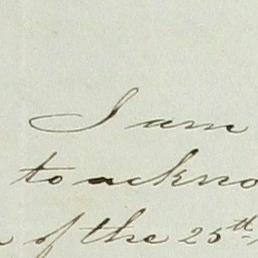 I am
to ackno
of the 25th